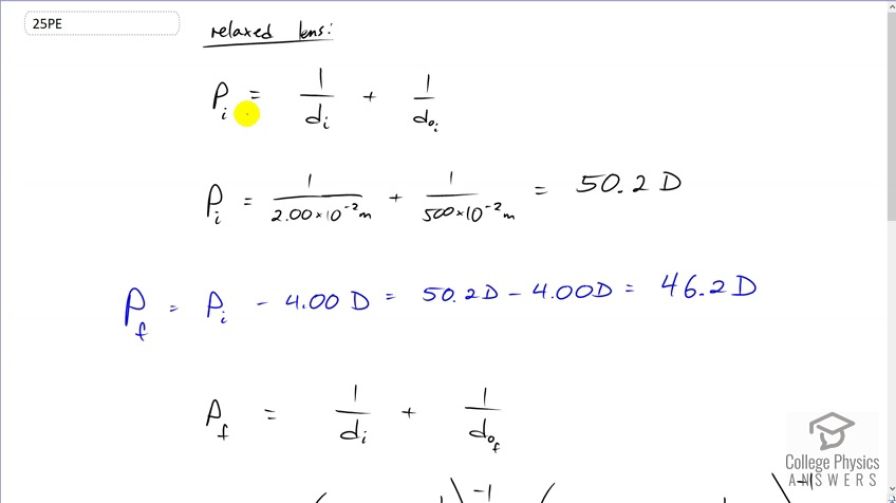 25PE
relaxed lens:
P_i = 1/d_i + 1/d_{o_i}
P_i = 1/(2.00×10^-2 m) + 1/(500×10^-2 m) = 50.2 D
P_f = P_i - 4.00 D = 50.2D - 4.00D = 46.2D
P_f = 1/d_i + 1/d_{o_f}
College Physics
ANSWERS